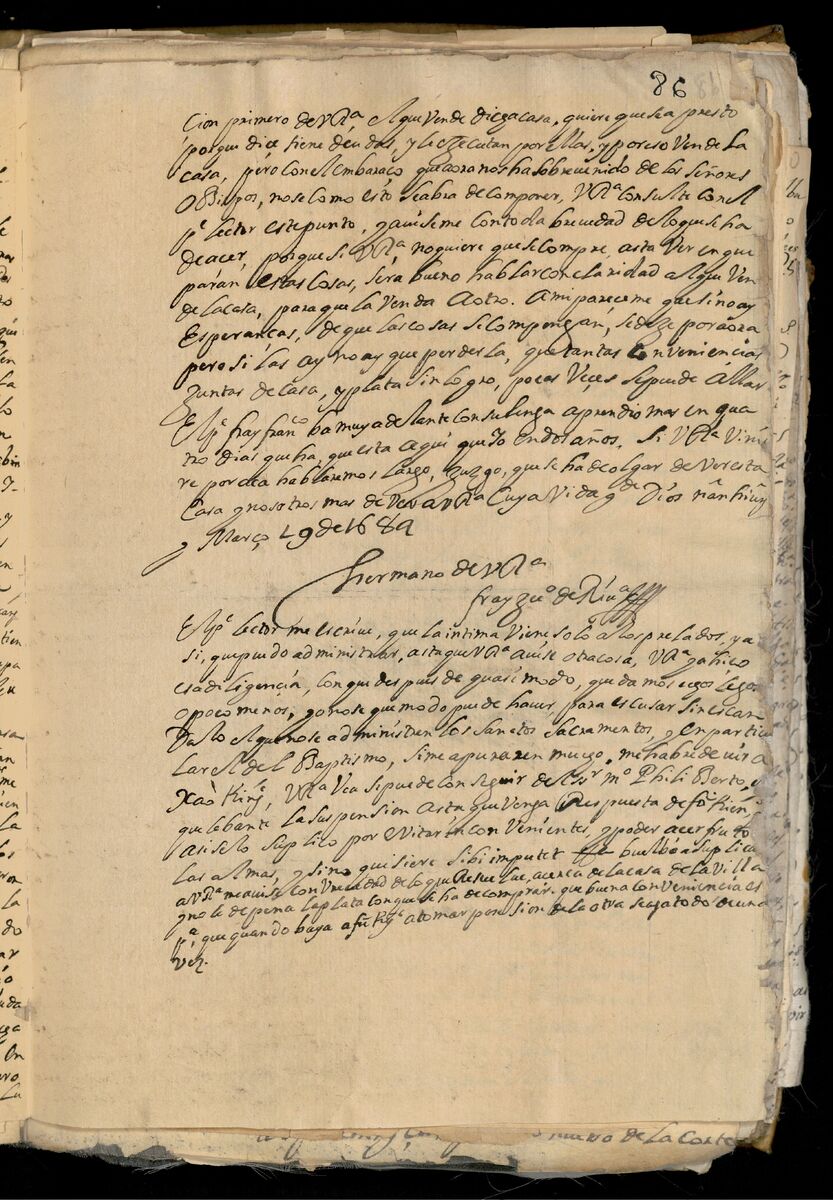 86
cion primero de VRª. el que Vende dicha casa, quiere que sea presto
porque dice tiene deudas, y le eZecutan por ellas, y por eso Vende la
casa, pero con el embaraço que aora nos ha sobrevenido de los señores
oBispos, no se como esto se abra de componer, VRª consulte con el
pe lector este punto, y auiseme con toda brevedad de lo que se ha
de acer, porque si VRª no quiere que se compre, asta Ver en que
parán estas cosas, será bueno hablar con claridad al que Ven
de la casa, para que la Venda a otro. A mi pareceme que si no ay
Esperanças, de que las cosas se compongan, se deZe por aora
pero si las ay no ay que perderla, que tantas conveniencias
Zuntas de casa, y plata sin logro, pocas Veçes se puede allar
El pe fray franco ba muy adelante con su lengua aprendio mas en qua
tro dias que ha, que esta aqui que Yo en dos años. Si VRª Vini
re por aca hablaremos largo, Zuzgo, que se ha de olgar de Ver esta
casa y nosotros mas de Ver a VRª Cuya Vida gde Dios nan hiuy
y Março 29 de 1684
hermano de VRª
fray de Riua
El pe lector me escriue, que la intima Viene solo a los prelados, y a
si, que puedo administrar, asta que VRª auise otra cosa, VRª ya hiço
esa diligencia, con que despues de quasimodo, quedamos
o poco menos; yo no se que modo puede haver, para escusar sin escan
dalo el que no se administren los sanctos sacramentos, y en particu
lar el del Baptismo, si me apuraren mucho, me habre de uir a
Xào King, VRª Vea se puede conseguir del Sr mo PhiliBerto,
que lebante la suspension asta que Venga Respuesta de fo Kien,
asi se lo suplico por evitar inconVenientes, y poder acer fruto
las almas, y si no quisiere sibi imputet buelbo a suplicar
a VRª me auise con brevedad de lo que Resuelve, acerca de la casa de la Villa
y no le de pena la plata con que se ha de comprar, que buena conVeniencia es
pª, que quando baya a tomar posesion de la otra se aga todo de una
vez.